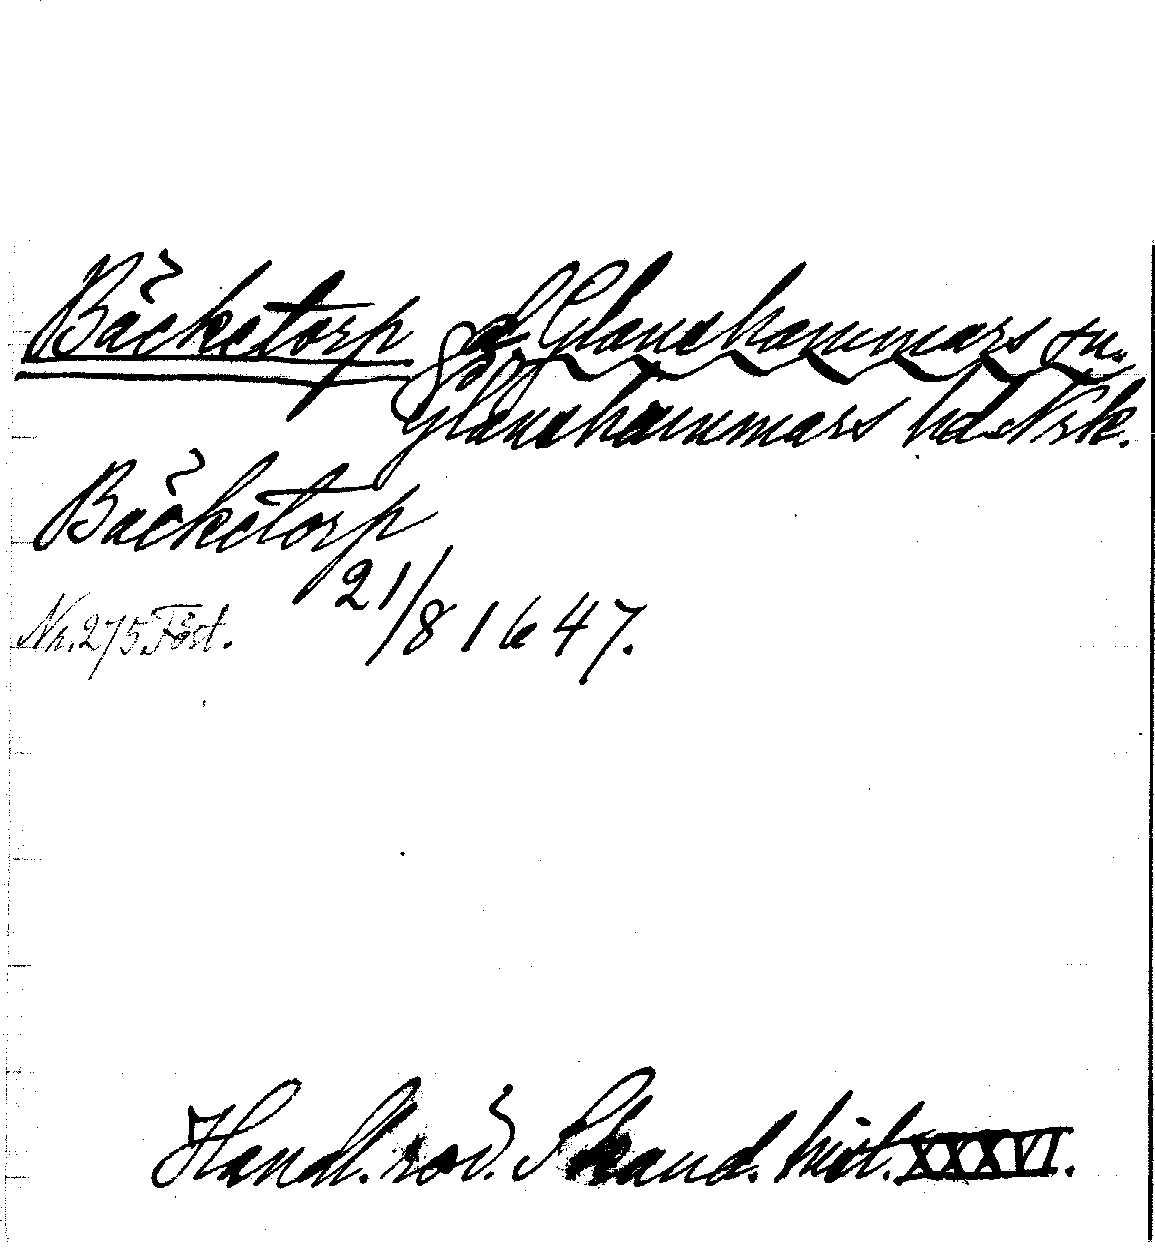 Bäcketorp Glanshammars sn.
Glanshammars hd. Nrk.
Bäcketorp
21/8 1647.
Nr. 275. Föst.
Handl. rör. Skand. hist. XXXVI.